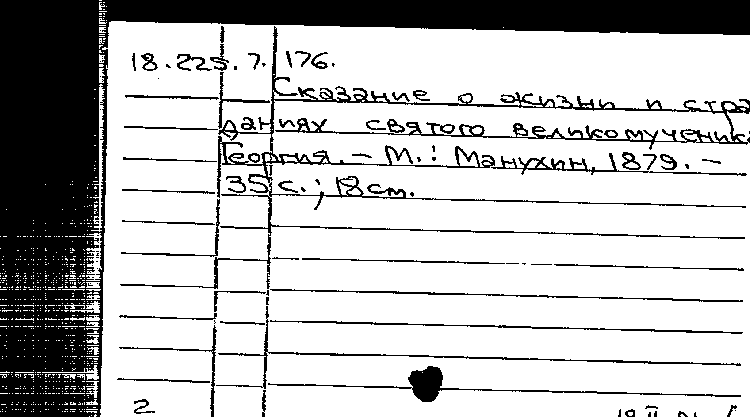 18.225.7.176.
Сказание о жизни и стра
даниях святого великомученика
Георгия. – М.: Манухин, 1879. –
35 с.; 18 см.
2